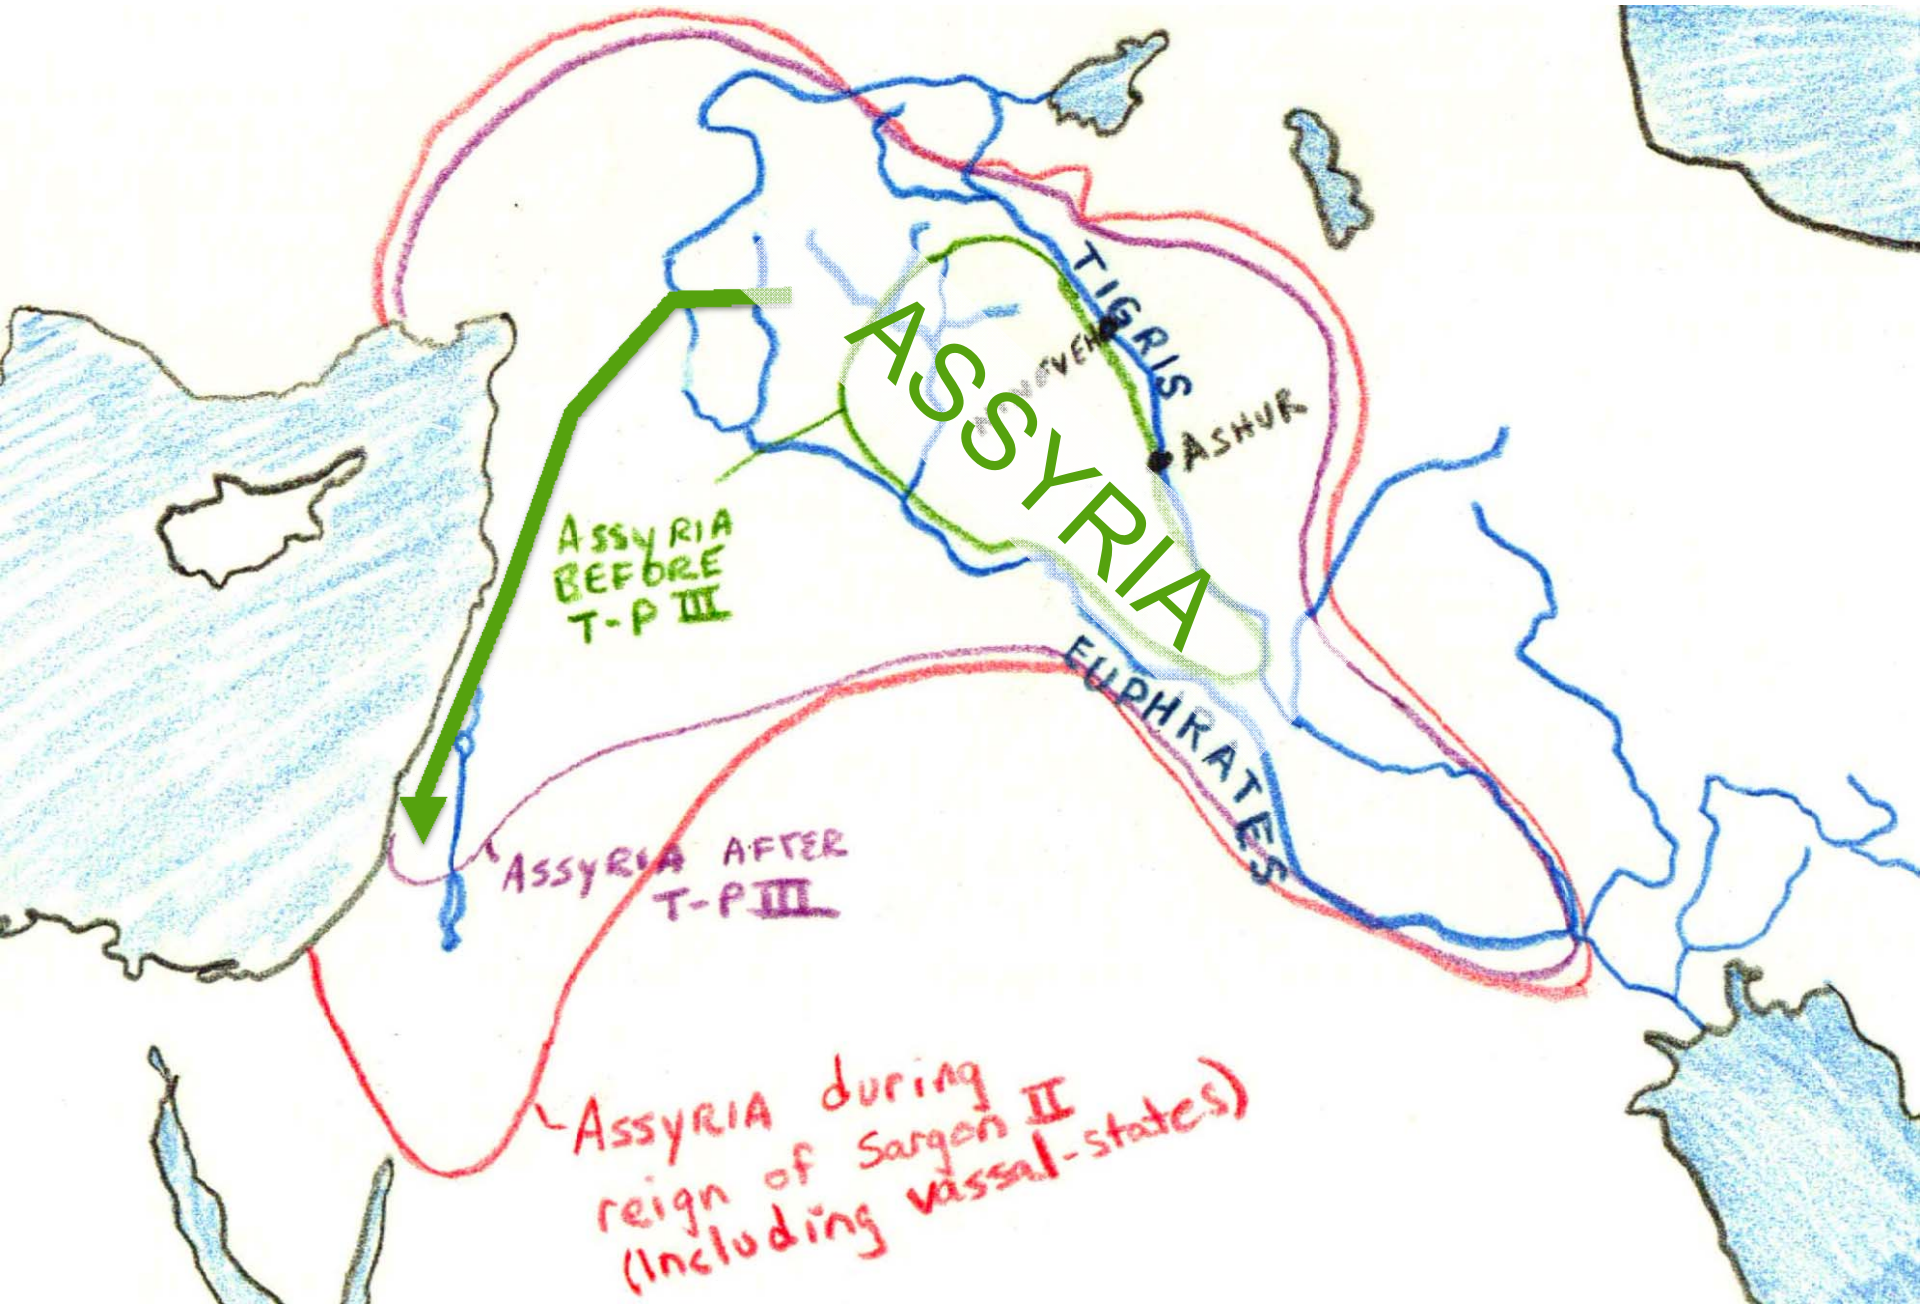 TIGRIS
ASSYRIA
ASHUR
ASSYRIA
BEFORE
T-P III
EUPHRATES
ASSYRIA AFTER
T-P III
ASSYRIA during
reign of Sargon II
(Including vassal-states)